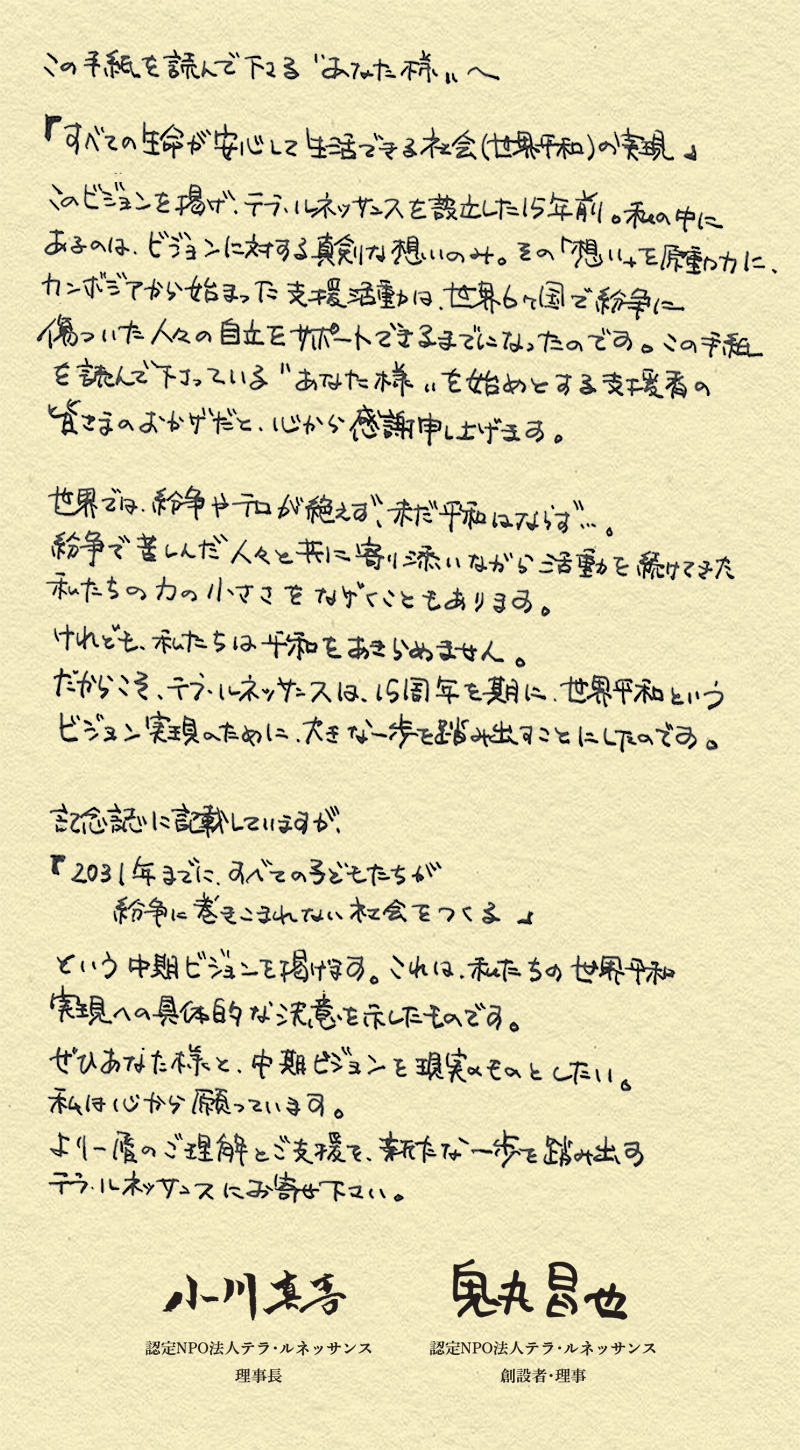 この手紙を読んで下さる"あなた様"へ
『すべての生命が安心して生活できる社会(世界平和)の実現』
このビジョンを掲げ、テラ・ルネッサンスを設立した15年前。私の中に
あるのは、ビジョンに対する真剣な想いのみ。その「想い」を原動力に、
カンボジアから始まった支援活動は、世界6ヶ国で紛争に
傷ついた人々の自立をサポートできるまでになったのです。この手紙
を読んで下さっている"あなた様"を始めとする支援者の
皆さまのおかげだと、心から感謝申し上げます。
世界では、紛争やテロが絶えず、未だ平和はならず…。
紛争で苦しんだ人々と共に寄り添いながら活動を続けてきた
私たちの力の小ささをなげくこともあります。
けれども、私たちは平和をあきらめません。
だからこそ、テラ・ルネッサンスは、15周年を期に、世界平和という
ビジョン実現のために、大きな一歩を踏み出すことにしたのです。
記念誌に記載していますが、
『2031年までに、すべての子どもたちが
紛争に巻きこまれない社会をつくる』
という中期ビジョンを掲げます。これは、私たちの世界平和
実現への具体的な決意を示したものです。
ぜひあなた様と、中期ビジョンを現実のものとしたい。
私は心から願っています。
より一層のご理解とご支援を、新たな一歩を踏み出す
テラ・ルネッサンスにお寄せ下さい。
小川真吾 鬼丸昌也
認定NPO法人テラ・ルネッサンス 認定NPO法人テラ・ルネッサンス
理事長 創設者・理事